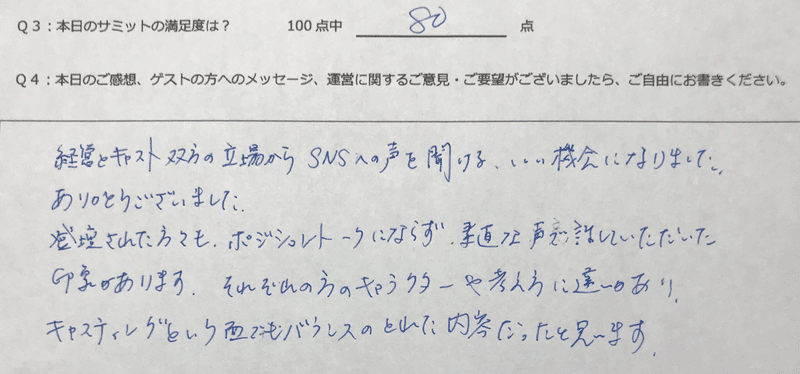 Q3：本日のサミットの満足度は？ 100点中 80 点
Q4：本日のご感想、ゲストの方へのメッセージ、運営に関するご意見・ご要望がございましたら、ご自由にお書きください。
経営とキャスト双方の立場からSNSへの声を聞ける、いい機会になりました。
ありがとうございました。
登壇された方々も、ポジショントークにならず、素直な声で話していただいた
印象があります。それぞれの方のキャラクターや考え方に違いがあり、
キャスティングという面でもバランスのとれた内容だったと思います。